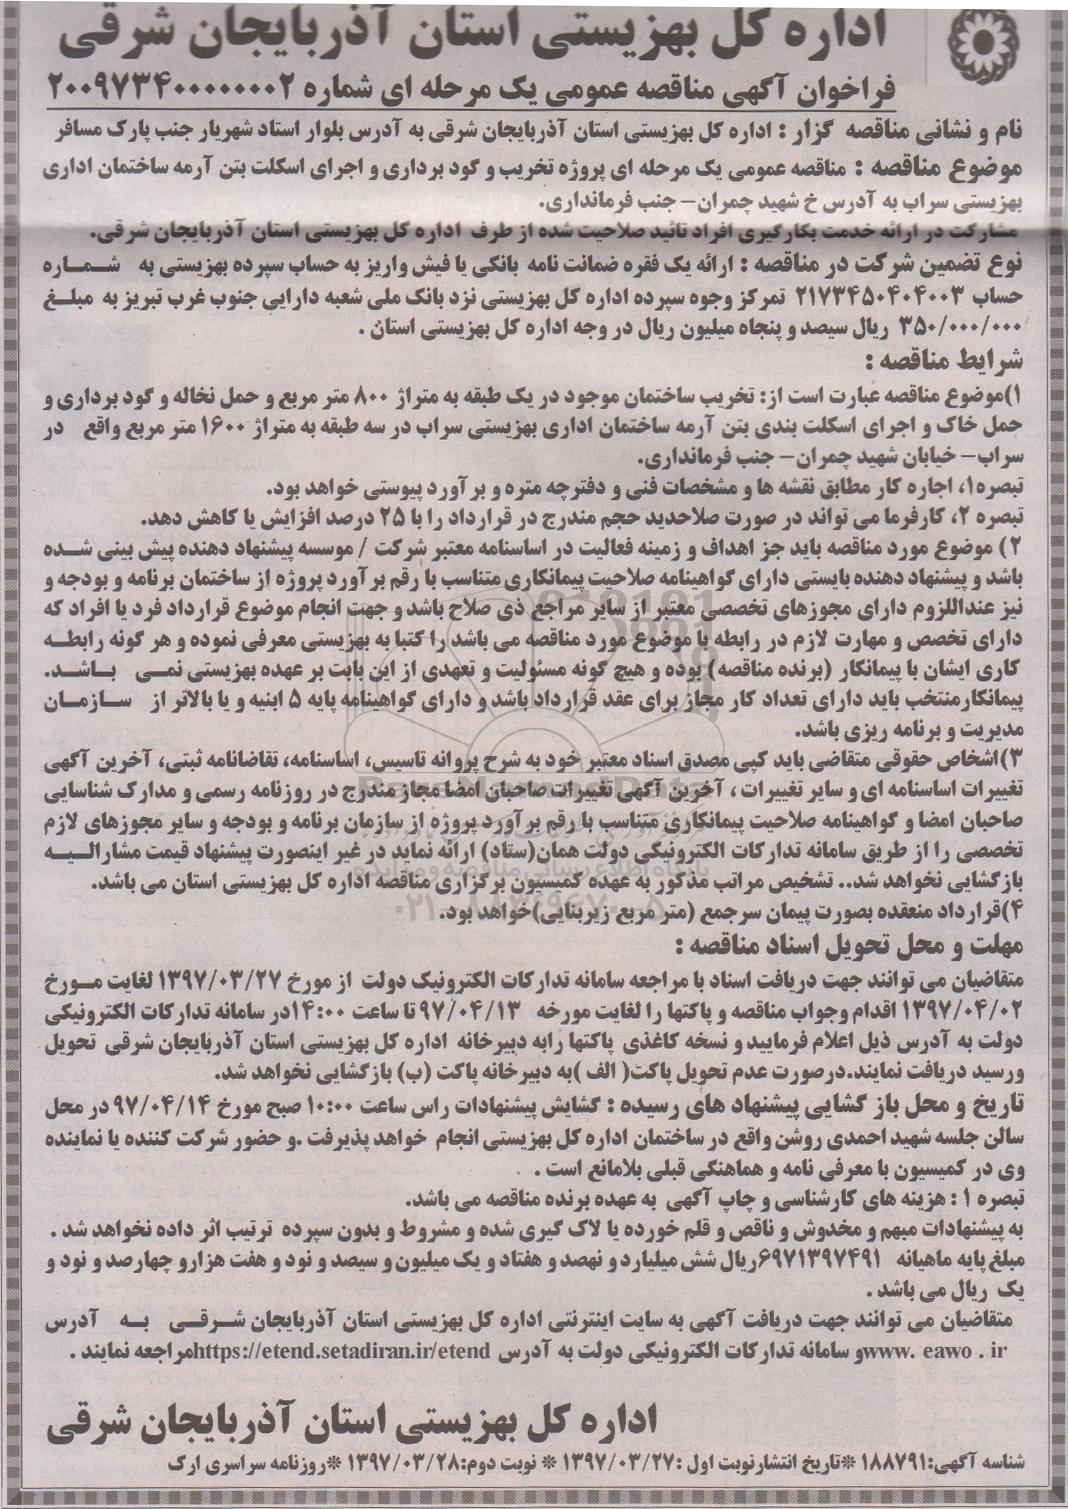 اداره کل بهزیستی استان آذربایجان شرقی
فراخوان آگهی مناقصه عمومی یک مرحله ای شماره ۲۰۰۹۷۳۴۰۰۰۰۰۰۰۰۲
نام و نشانی مناقصه گزار : اداره کل بهزیستی استان آذربایجان شرقی به آدرس بلوار استاد شهریار جنب پارک مسافر
موضوع مناقصه : مناقصه عمومی یک مرحله ای پروژه تخریب و گود برداری و اجرای اسکلت بتن آرمه ساختمان اداری
بهزیستی سراب به آدرس خ شهید چمران– جنب فرمانداری.
مشارکت در ارائه خدمت بکارگیری افراد تائید صلاحیت شده از طرف اداره کل بهزیستی استان آذربایجان شرقی.
نوع تضمین شرکت در مناقصه : ارائه یک فقره ضمانت نامه بانکی یا فیش واریز به حساب سپرده بهزیستی به شماره
حساب ۲۱۷۳۴۵۰۴۰۴۰۰۳ تمرکز وجوه سپرده اداره کل بهزیستی نزد بانک ملی شعبه دارایی جنوب غرب تبریز به مبلغ
۳۵۰/۰۰۰/۰۰۰ ریال سیصد و پنجاه میلیون ریال در وجه اداره کل بهزیستی استان .
شرایط مناقصه :
۱)موضوع مناقصه عبارت است از: تخریب ساختمان موجود در یک طبقه به متراژ ۸۰۰ متر مربع و حمل نخاله و گود برداری و
حمل خاک و اجرای اسکلت بندی بتن آرمه ساختمان اداری بهزیستی سراب در سه طبقه به متراژ ۱۶۰۰ متر مربع واقع در
سراب– خیابان شهید چمران– جنب فرمانداری.
تبصره۱، اجاره کار مطابق نقشه ها و مشخصات فنی و دفترچه متره و برآورد پیوستی خواهد بود.
تبصره ۲، کارفرما می تواند در صورت صلاحدید حجم مندرج در قرارداد را با ۲۵ درصد افزایش یا کاهش دهد.
۲) موضوع مورد مناقصه باید جز اهداف و زمینه فعالیت در اساسنامه معتبر شرکت / موسسه پیشنهاد دهنده پیش بینی شده
باشد و پیشنهاد دهنده بایستی دارای گواهینامه صلاحیت پیمانکاری متناسب با رقم برآورد پروژه از ساختمان برنامه و بودجه و
نیز عنداللزوم دارای مجوزهای تخصصی معتبر از سایر مراجع ذی صلاح باشد و جهت انجام موضوع قرارداد فرد یا افراد که
دارای تخصص و مهارت لازم در رابطه با موضوع مورد مناقصه می باشد را کتبا به بهزیستی معرفی نموده و هر گونه رابطه
کاری ایشان با پیمانکار (برنده مناقصه) بوده و هیچ گونه مسئولیت و تعهدی از این بابت بر عهده بهزیستی نمی باشد.
پیمانکارمنتخب باید دارای تعداد کار مجاز برای عقد قرارداد باشد و دارای گواهینامه پایه ۵ ابنیه و یا بالاتر از سازمان
مدیریت و برنامه ریزی باشد.
۳)اشخاص حقوقی متقاضی باید کپی مصدق اسناد معتبر خود به شرح پروانه تاسیس، اساسنامه، تقاضانامه ثبتی، آخرین آگهی
تغییرات اساسنامه ای و سایر تغییرات ، آخرین آگهی تغییرات صاحبان امضا مجاز مندرج در روزنامه رسمی و مدارک شناسایی
صاحبان امضا و گواهینامه صلاحیت پیمانکاری متناسب با رقم برآورد پروژه از سازمان برنامه و بودجه و سایر مجوزهای لازم
تخصصی را از طریق سامانه تدارکات الکترونیکی دولت همان(ستاد) ارائه نماید در غیر اینصورت پیشنهاد قیمت مشارالیه
بازگشایی نخواهد شد.. تشخیص مراتب مذکور به عهده کمیسیون برگزاری مناقصه اداره کل بهزیستی استان می باشد.
۴)قرارداد منعقده بصورت پیمان سرجمع (متر مربع زیربنایی)خواهد بود.
مهلت و محل تحویل اسناد مناقصه :
متقاضیان می توانند جهت دریافت اسناد با مراجعه سامانه تدارکات الکترونیک دولت از مورخ ۱۳۹۷/۰۳/۲۷ لغایت مورخ
۱۳۹۷/۰۴/۰۲ اقدام وجواب مناقصه و پاکتها را لغایت مورخه ۹۷/۰۴/۱۳ تا ساعت ۱۴:۰۰در سامانه تدارکات الکترونیکی
دولت به آدرس ذیل اعلام فرمایید و نسخه کاغذی پاکتها رابه دبیرخانه اداره کل بهزیستی استان آذربایجان شرقی تحویل
ورسید دریافت نمایند.درصورت عدم تحویل پاکت( الف )به دبیرخانه پاکت (ب) بازگشایی نخواهد شد.
تاریخ و محل باز گشایی پیشنهاد های رسیده : گشایش پیشنهادات راس ساعت ۱۰:۰۰ صبح مورخ ۹۷/۰۴/۱۴ در محل
سالن جلسه شهید احمدی روشن واقع در ساختمان اداره کل بهزیستی انجام خواهد پذیرفت .و حضور شرکت کننده یا نماینده
وی در کمیسیون با معرفی نامه و هماهنگی قبلی بلامانع است .
تبصره ۱ : هزینه های کارشناسی و چاپ آگهی به عهده برنده مناقصه می باشد.
به پیشنهادات مبهم و مخدوش و ناقص و قلم خورده یا لاک گیری شده و مشروط و بدون سپرده ترتیب اثر داده نخواهد شد .
مبلغ پایه ماهیانه ۶۹۷۱۳۹۷۴۹۱ریال شش میلیارد و نهصد و هفتاد و یک میلیون و سیصد و نود و هفت هزارو چهارصد و نود و
یک ریال می باشد .
متقاضیان می توانند جهت دریافت آگهی به سایت اینترنتی اداره کل بهزیستی استان آذربایجان شرقی به آدرس
www. eawo . irو سامانه تدارکات الکترونیکی دولت به آدرس https://etend.setadiran.ir/etendمراجعه نمایند .
اداره کل بهزیستی استان آذربایجان شرقی
شناسه آگهی:۱۸۸۷۹۱ *تاریخ انتشارنوبت اول :۱۳۹۷/۰۳/۲۷ * نوبت دوم:۱۳۹۷/۰۳/۲۸ *روزنامه سراسری ارک